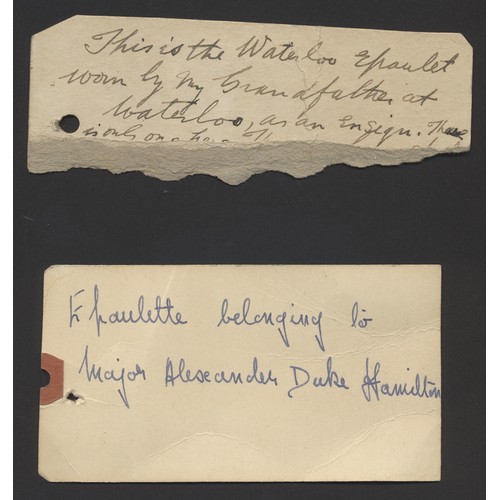 This is the Waterloo Epaulet
worn by my Grandfather at
Waterloo, as an Ensign. There
is only one here
Epaulette belonging to
Major Alexander Duke Hamilton